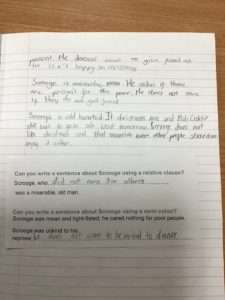 present. He doesnot want to give food out
for it is't happy on christmas
Scrooge is miserable, mean. He
are for the poor. He does not care
if they die and just
Scrooge is cold hearted. If christmas eve and Bob Cratchit
still has to go in work tomorrow. Scrooge does not
like christmas and that mean's every other people shouldn
enjoy it either.
Can you write a sentence about Scrooge using a relative clause?
Scrooge, who did not care for others
was a miserable, old man.
Can you write a sentence about Scrooge using a semi colon?
Scrooge was mean and tight-fisted; he cared nothing for poor people.
Scrooge was unkind to his
nephew; he does not want to be invited to dinner